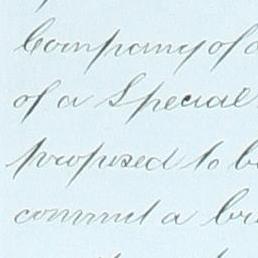 Company of a
of a Special
proposed to be
commit a